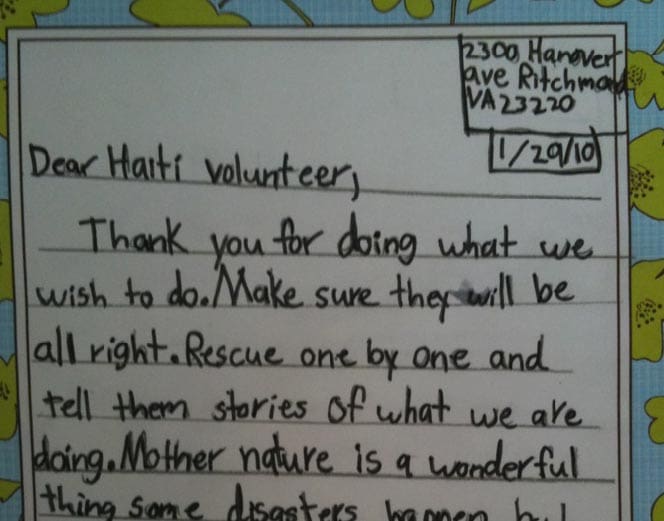 2300 Hanover
ave Ritchmond
VA 23220
1/29/10
Dear Haiti volunteer,
Thank you for doing what we
wish to do. Make sure they will be
all right. Rescue one by one and
tell them stories of what we are
doing. Mother nature is a wonderful
thing some disasters happen but